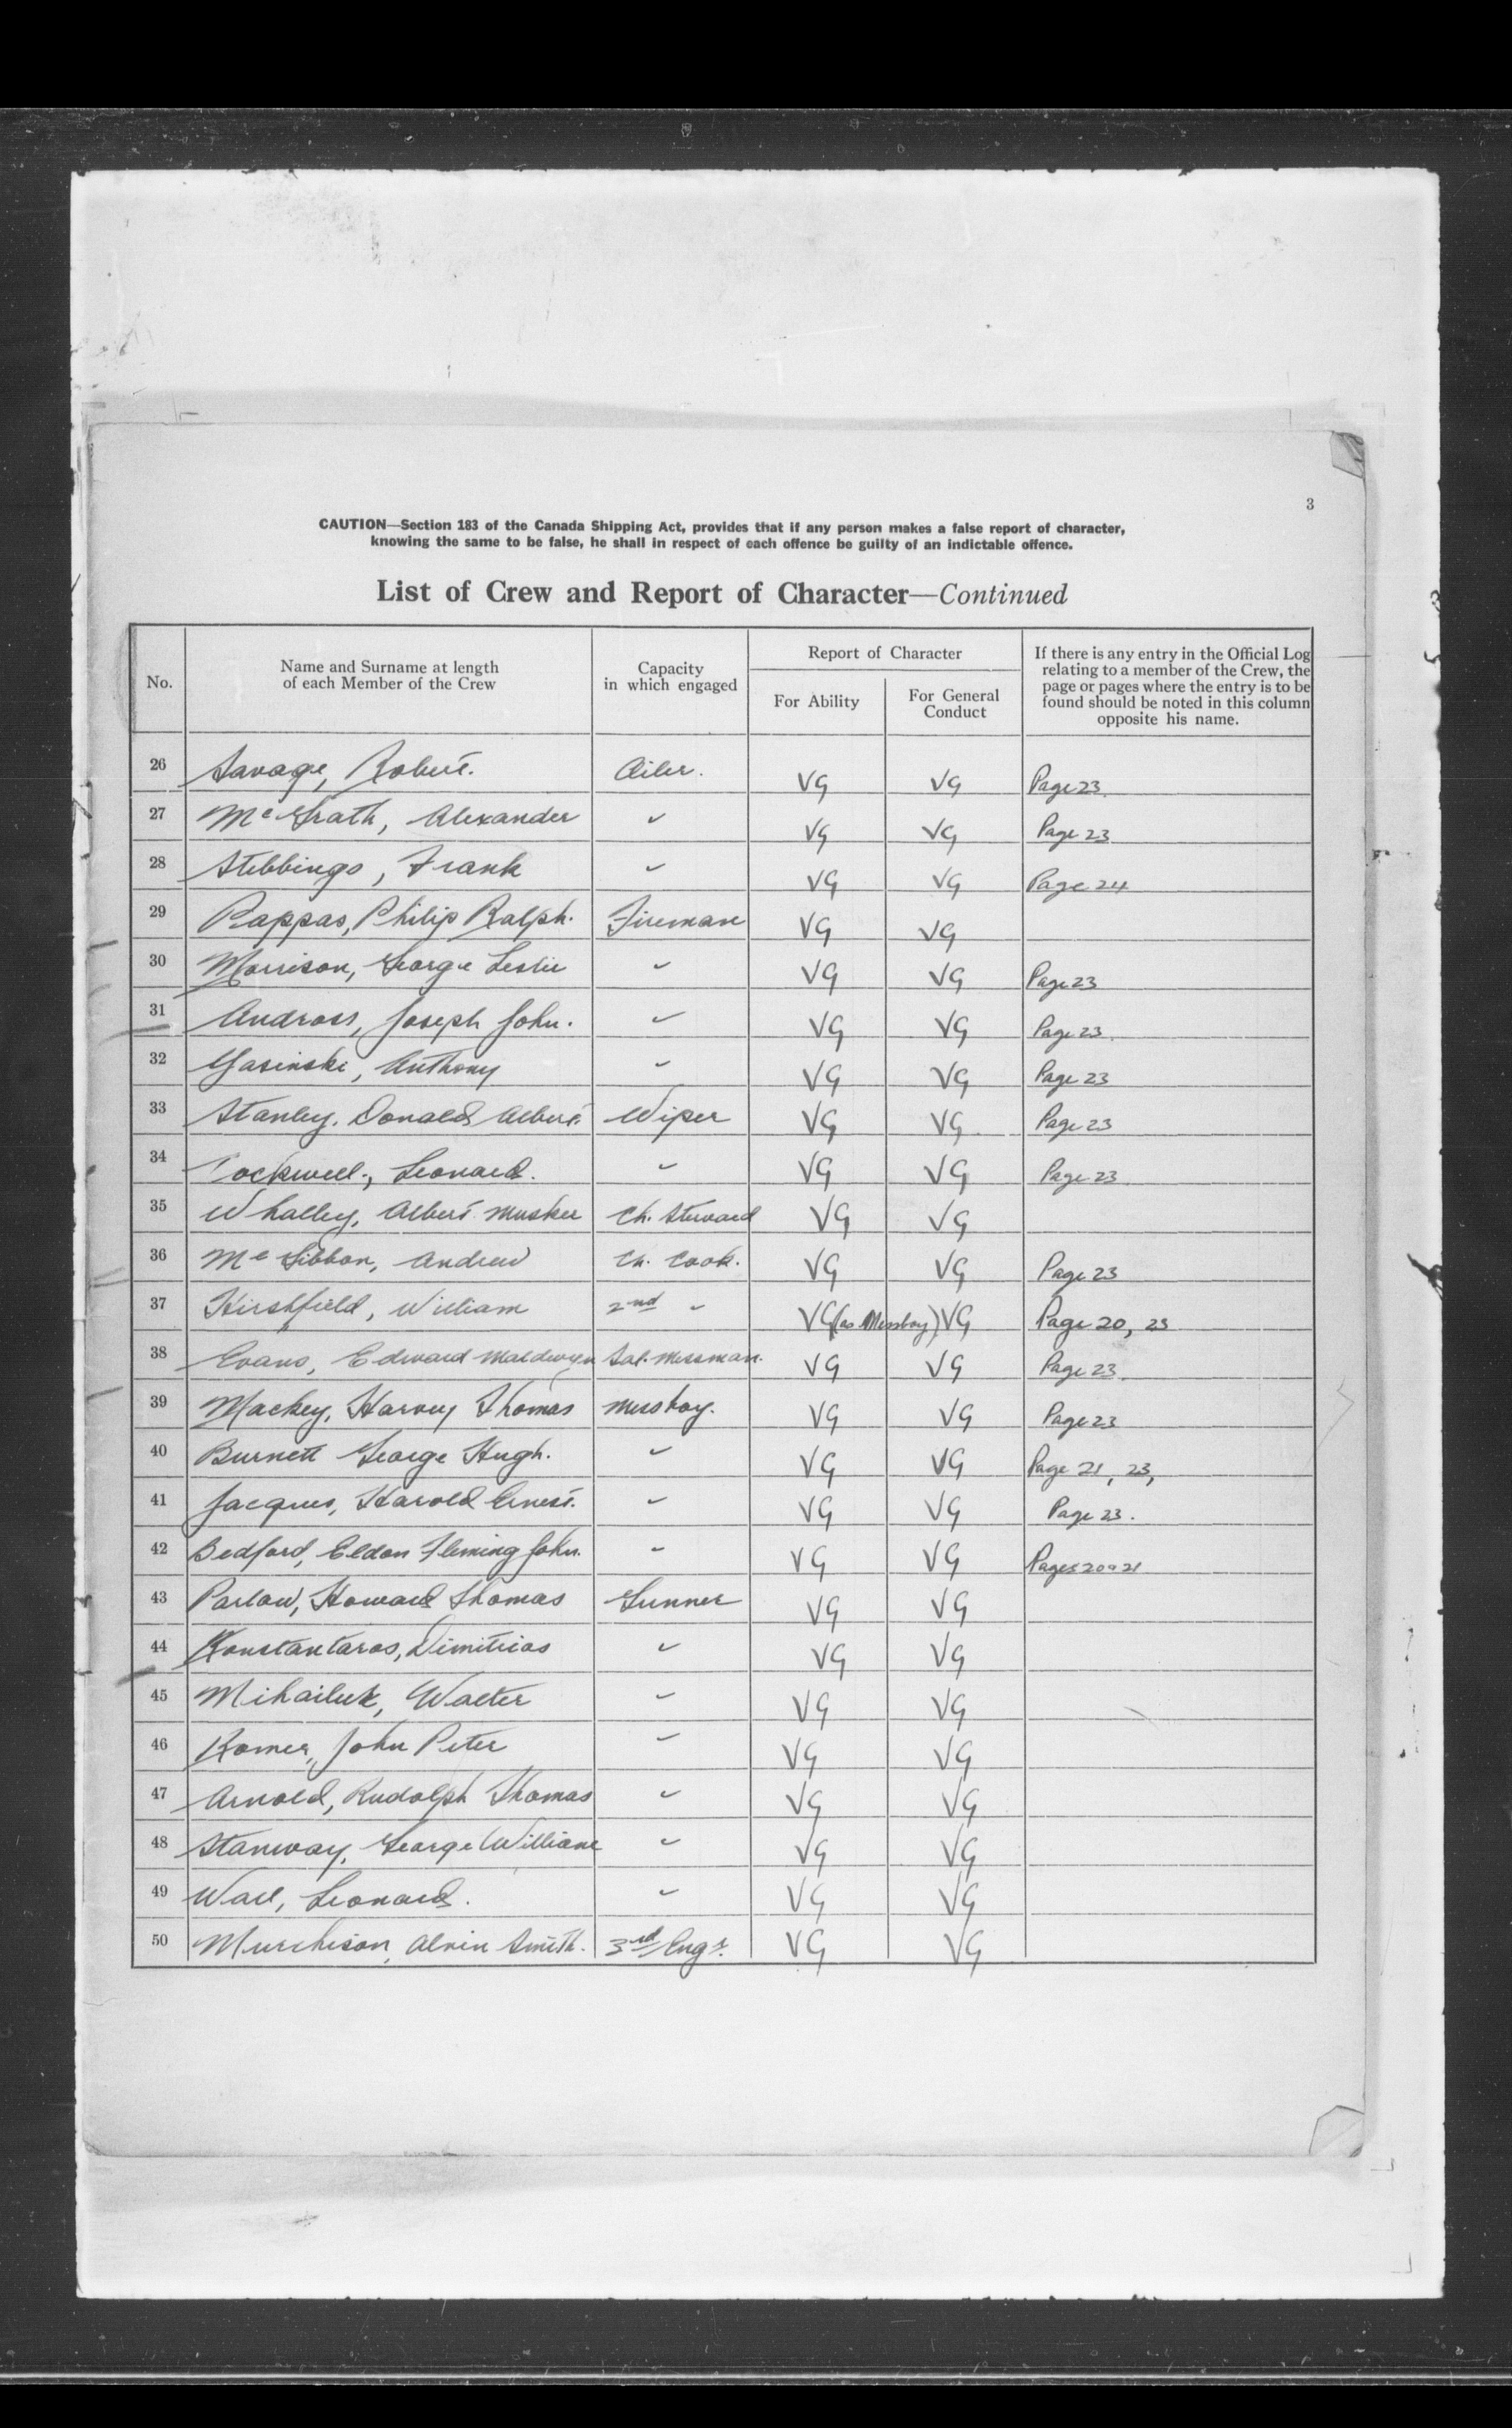 3
CAUTION—Section 183 of the Canada Shipping Act, provides that if any person makes a false report of character,
knowing the same to be false, he shall in respect of each offence be guilty of an indictable offence.
List of Crew and Report of Character—Continued
No. Name and Surname at length of each Member of the Crew Capacity in which engaged Report of Character For Ability For General Conduct If there is any entry in the Official Log relating to a member of the Crew, the page or pages where the entry is to be found should be noted in this column opposite his name.
26 Savage, Robert. Oiler. VG VG Page 23
27 McGrath, Alexander " VG VG Page 23
28 Stebbings, Frank " VG VG Page 24
29 Pappas, Philip Ralph. Fireman VG VG
30 Morrison, George Leslie " VG VG Page 23
31 Andross, Joseph John. " VG VG Page 23
32 Yasinski, Anthony " VG VG Page 23
33 Stanley, Donald Albert. Wiper VG VG Page 23
34 Tockwell, Leonard. " VG VG Page 23
35 Whalley, Albert Musker Ch. Steward VG VG
36 McGibbon, Andrew Ch. Cook. VG VG Page 23
37 Hirshfield, William 2nd " VG (as Messboy) VG Page 20, 23
38 Evans, Edward Maldwyn Sal. Messman. VG VG Page 23
39 Mackey, Harvey Thomas Messboy. VG VG Page 23
40 Burnett George Hugh. " VG VG Page 21, 23,
41 Jacques, Harold Ernest. " VG VG Page 23.
42 Bedford, Eldon Fleming John. " VG VG Pages 20 & 21
43 Parlow, Howard Thomas Gunner VG VG
44 Konstantaros, Dimitrios " VG VG
45 Mihailuk, Walter " VG VG
46 Romer, John Peter " VG VG
47 Arnold, Rudolph Thomas " VG VG
48 Stanway, George William " VG VG
49 Wall, Leonard. " VG VG
50 Murchison, Alvin Smith. 3rd Engr. VG VG